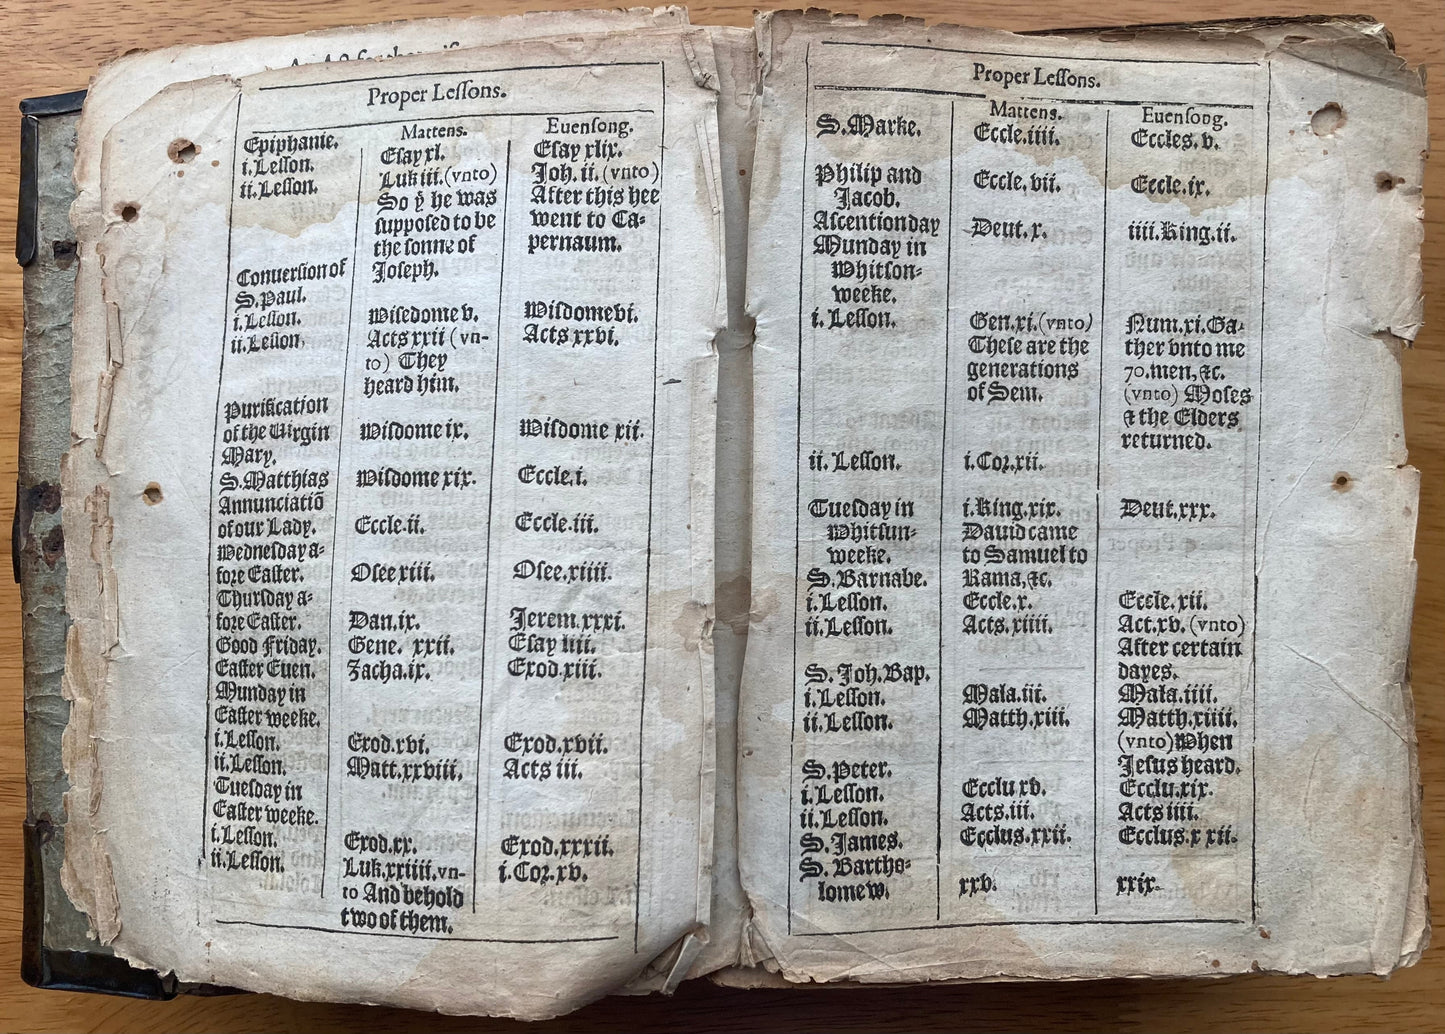 Proper Lessons.
Mattens. Euensong.
Epiphanie.
i.Lesson. Esay xl. Esay xlix.
ii.Lesson. Luk iii.(vnto) Joh. ii. (vnto)
So ẏ he was After this hee
supposed to be went to Ca-
the sonne of pernaum.
Conuersion of Joseph.
S.Paul.
i.Lesson. Wisedome v. Wisdome vi.
ii.Lesson, Acts xxii (vn- Acts xxvi.
to) They
heard him.
Purification
of the Uirgin Wisdome ix. Wisdome xii.
Mary.
S.Matthias Wisdome xix. Eccle.i.
Annunciatiō
of our Lady. Eccle.ii. Eccle.iii.
Wednesday a-
fore Easter. Osee xiii. Osee.xiiii.
Thursday a-
fore Easter. Dan.ix. Jerem.xxxi.
Good Friday. Gene. xxii. Esay liii.
Easter Euen. Zacha.ix. Exod.xiii.
Munday in
Easter weeke.
i.Lesson. Exod.xvi. Exod.xvii.
ii.Lesson. Matt.xxviii. Acts iii.
Tuesday in
Easter weeke.
i.Lesson. Exod.xx. Exod.xxxii.
ii.Lesson. Luk.xxiiii.vn- i.Cor.xv.
to And behold
two of them.
Proper Lessons.
Mattens. Euensong.
S.Marke. Eccle.iiii. Eccles.v.
Philip and
Jacob. Eccle.vii. Eccle.ix.
Ascention day Deut.x. iiii.King.ii.
Munday in
Whitson-
weeke.
i.Lesson. Gen.xi.(vnto) Num.xi.Ga-
These are the ther vnto me
generations 70.men,&c.
of Sem. (vnto) Moses
& the Elders
returned.
ii.Lesson. i.Cor.xii.
Tuesday in i.King.xix. Deut.xxx.
Whitsun- Dauid came
weeke. to Samuel to
S.Barnabe. Rama,&c.
i.Lesson. Eccle.x. Eccle.xii.
ii.Lesson. Acts.xiiii. Act.xv.(vnto)
After certain
S.Joh.Bap. dayes.
i.Lesson. Mala.iii. Mala.iiii.
ii.Lesson. Matth.xiii. Matth.xiiii.
(vnto)When
S.Peter. Jesus heard.
i.Lesson. Ecclu.xv. Ecclu.xix.
ii.Lesson. Acts.iii. Acts iiii.
S.James. Ecclus.xxii. Ecclus.xxii.
S.Bartho-
lomew. xxv. xxix.